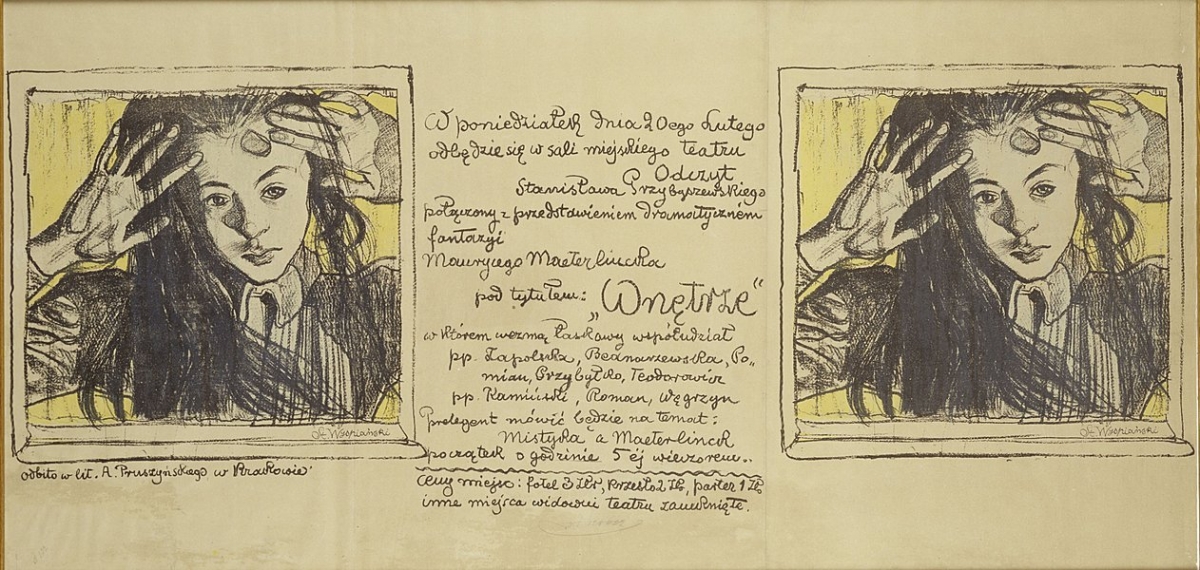 W poniedziałek dnia 20ego Lutego
odbędzie się w sali miejskiego teatru
Odczyt
Stanisława Przybyszewskiego
połączony z przedstawieniem dramatycznem
fantazyi
Maurycego Maeterlincka
pod tytułem: „Wnętrze“
w którem wezmą łaskawy współudział
pp. Zapolska, Bednarzewska, Po„
mian, Przybyłko, Teodorowicz
pp. Kamiński, Roman, Węgrzyn
Prelegent mówić będzie na temat:
Mistyka a Maeterlinck
początek o godzinie 5ej wieczorem..
Ceny miejsc: fotel 3 Złr, Krzesło 2 Złr, parter 1 Złr
inne miejsca widowni teatru zamknięte.
St. Wyspiański
odbito w lit. A. Pruszyńskiego w Krakowie
St. Wyspiański